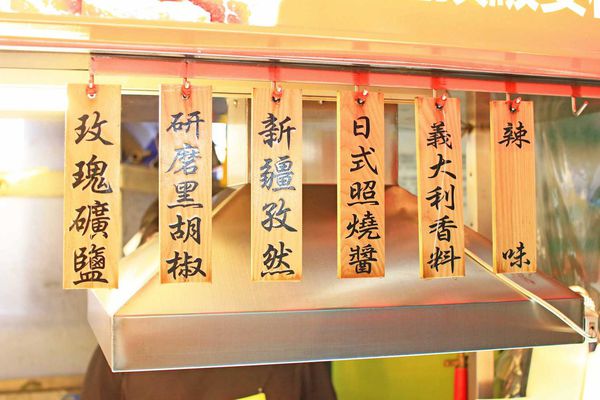 玫瑰礦鹽
研磨黑胡椒
新疆孜然
日式照燒醬
義大利香料
辣味